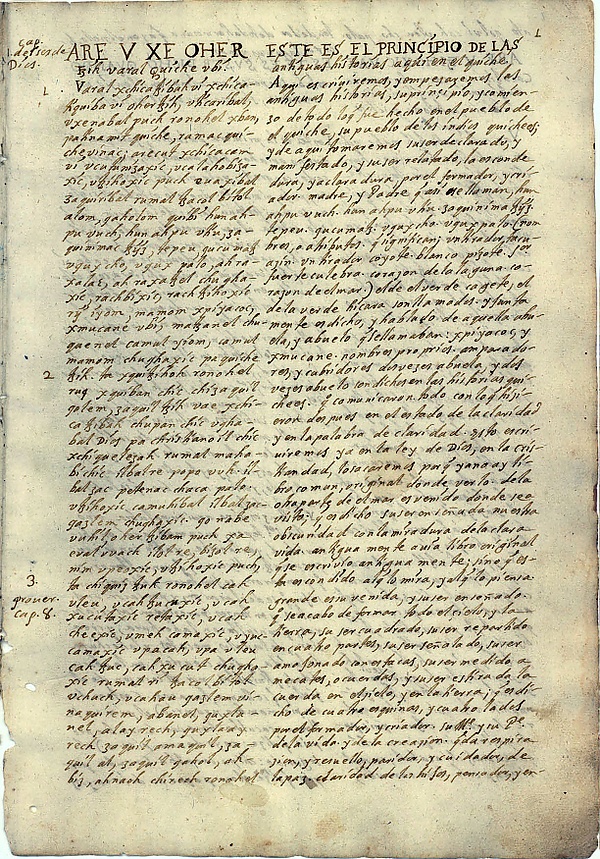 ARE V XE OHER
varal Quiche vbi.
Varal xchicatzibah vi xchica-
tiquiba vi oher tzih, vticaribal,
vxenabal puch ronohel xban,
pa tinamit quiche, ramac qui-
che vinac; arecut xchicacam
vi vcutunizaxic, vcalahobiza-
xic, vtzihoxic puch euaxibal
zaquiribal rumal tzacol bitol
alom, qaholom quibi hun ah-
pu vuch, hun ahpu vhu, za-
quinimac tzyz, tepeu, gucumatz
vqux cho, vqux palo, ah ra-
xa lac, ah raxa tzel chugha-
xic, rachbixic, rachtzihoxic
ri iyom, mamom xpiyacoc,
xmucane vbi, matzanel chu-
quenel camul iyom, camul
mamom chughaxic pa quiche
tzih. ta xquitzihoh ronohel
ruq xquiban chic chi zaquil
qolem, zaquil tzih vae xchi-
catzibah chupan chic vcha-
bal Dios pa christianoil chic
xchiquelezah rumal maha-
bi chic ilbal re popo vuh il-
bal zac petenac chaca palo
vtzihoxic camuhibal ilbal zac-
qazlem chughaxic. qo nabe
vuhil oher tzibam puch xa
eual vvach ilol re, bizol re,
nim vpeoxic, vtzihoxic puch,
ta chiquiz tzuc ronohel cah
vleu, vcah tzucuxic, vcah
xucutaxic retaxic, vcah
cheexic, vmeh camaxic, vyuc
camaxic vpa cah, vpa vleu
cah tzuc, cah xucut chugha-
xic rumal ri tzacol bitol
vchuch, vcahau qazlem vi-
naquirem, abanel, quxla-
nel, alay rech, quxlaay
rech zaquil amaquil, za-
quil al, zaquil qahol, ah
biz, ahnaoh chirech ronohel
1
2
3.
prouer.
cap. 8.
1
ESTE ES EL PRINCÍPIO DE LAS
antiguas historias aqui en el quiche.
Aqui escriuiremos, y empesaremos las
antiguas historias, su principio, y comien-
zo de todo lo q fue hecho en el pueblo de
el quiche, su pueblo de los indios quichees;
y de aqui tomaremos su ser declarado, y
manifestado, y su ser relatado, la esconde
dura, y aclaradura, por el formador, y cri-
ador. madre, y Padre q asi se llaman, hun
ahpu vuch. hun ahpu vhu. zaquinima tzyz
tepeu. gucumatz. vqux cho. vqux palo. (nom
bres, o atributos. q significan; vn tirador tacu-
azin. vn tirador coyote. blanco pizote. señor
fuerte culebra. corazon de la laguna. co-
razon de el mar.) el de el verde cagete, el
de la verde hicara son llamados. y junta
mente es dicho, y hablado de aquella abu
ela, y abuelo q se llamaban: xpiyacoc, y
xmucane. nombres proprios. amparado-
res, y cubridores dos vezes abuela, y dos
vezes abuelo son dichos en las historias qui-
chees. q comunicaron todo con lo q hizi-
eron despues en el estado de la claridad
y en la palabra de claridad. Esto escri-
uiremos ya en la ley de Dios, en la cris-
tiandad, lo sacaremos, porq ya no ay li-
bro, comun, original donde verlo. de la
otra parte de el mar es venido donde se a
visto; q es dicho su ser enseñada nuestra
obscuridad con la miradura de la clara
vida. antigua mente auia libro original
que se escriuio antigua mente; sino q es-
ta escondido al q lo mira, y al q lo piensa.
grande es su venida, y su ser enseñado.
q se acabo de formar todo el cielo, y la
tierra, su ser cuadrado, su ser repartido
en cuatro partes, su ser señalado, su ser
amojonado con estacas, su ser medido a
mecates, o cuerdas, y su ser estirada la
cuerda en el sielo, y en la tierra; q es di-
cho de cuatro esquinas, y cuatro lados
por el formador, y criador. su Me. y su Pe.
de la vida. y de la creazion. q da respira-
zion, y resuello, paridor, y cuidador, de
la paz. claridad de los hijos, pensador, y en-